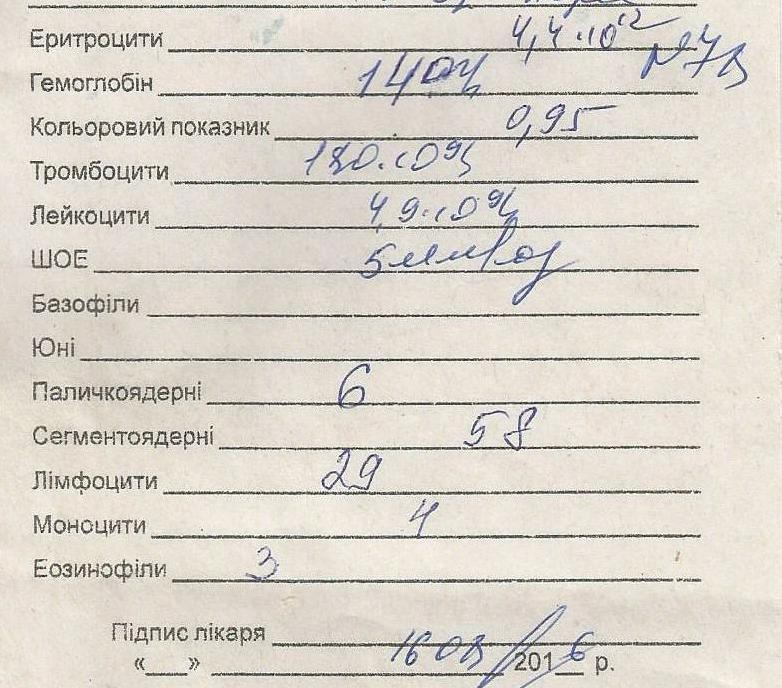 Еритроцити 4,4·10¹²
Гемоглобін 140
Кольоровий показник 0,95
Тромбоцити 180·10⁹
Лейкоцити 4,9·10⁹
ШОЕ 5 мм/год
Базофіли
Юні
Паличкоядерні 6
Сегментоядерні 58
Лімфоцити 29
Моноцити 4
Еозинофіли 3
Підпис лікаря
«___» 16 03 2016 р.